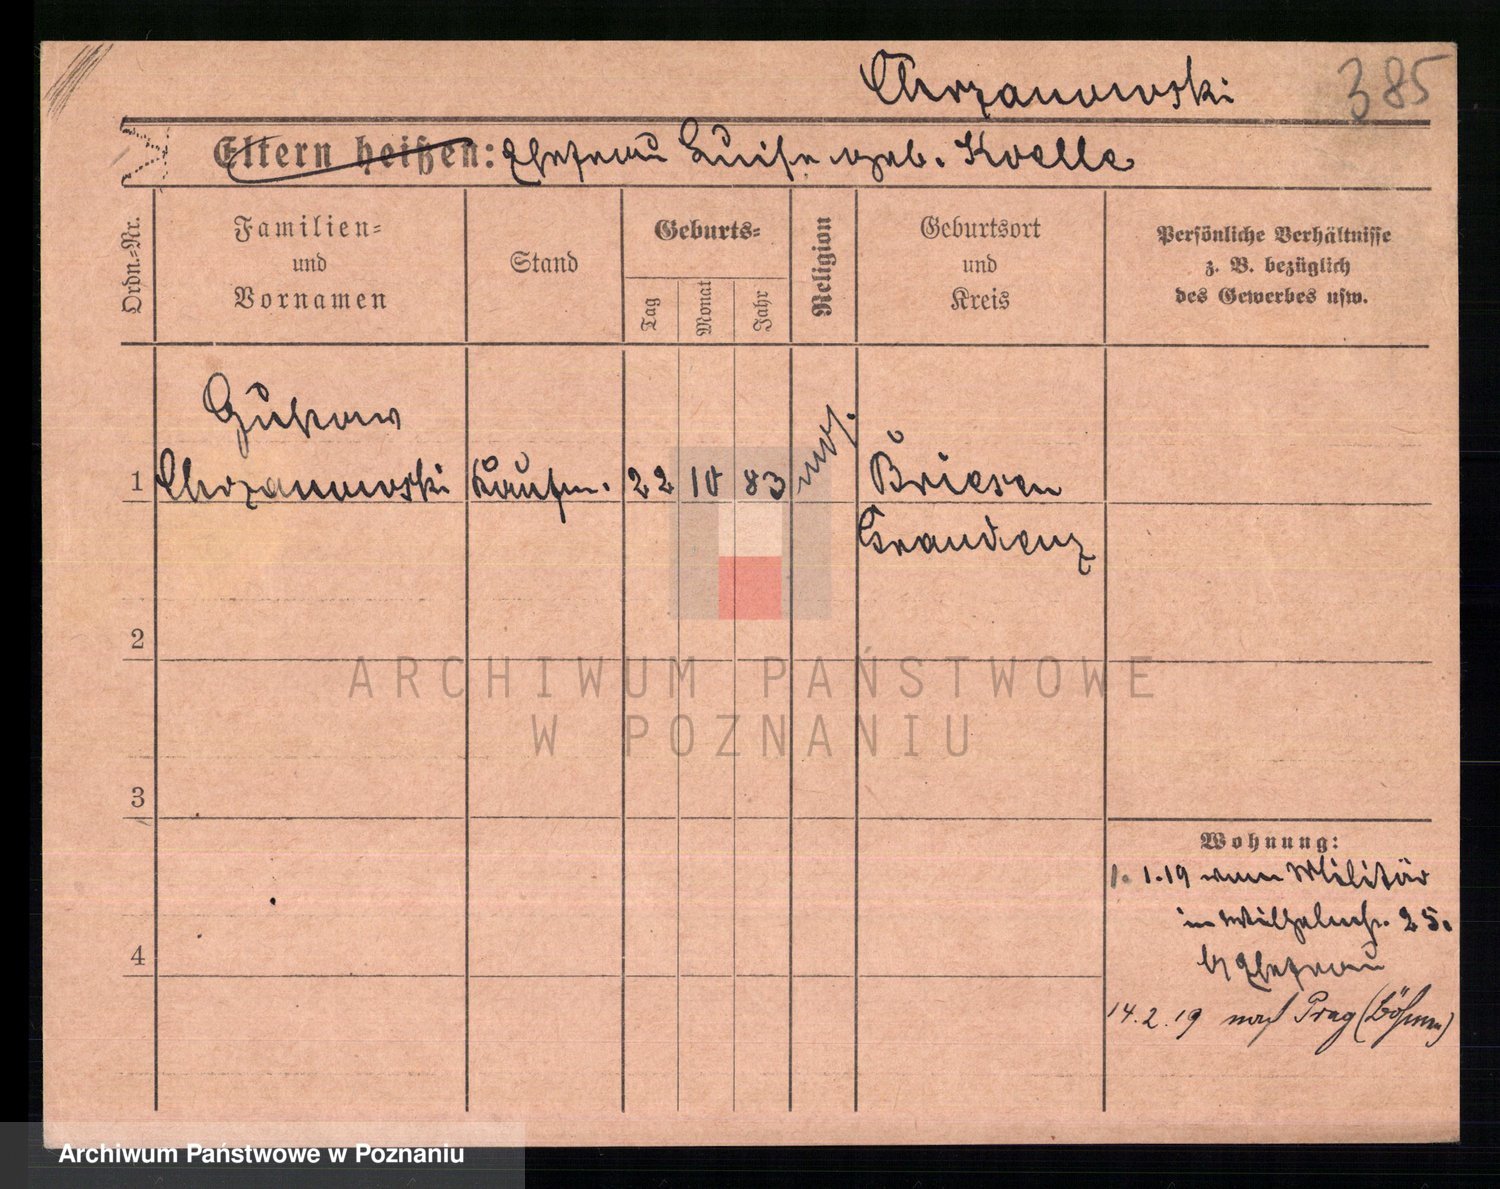 Chrzanowski 385
Eltern heißen: Ehefrau Luise geb. Koelle
Ordn.-Nr.
Familien-
und
Vornamen
Stand
Geburts-
Tag
Monat
Jahr
Religion
Geburtsort
und
Kreis
Persönliche Verhältnisse
z. B. bezüglich
des Gewerbes usw.
Gustav
1 Chrzanowski Kaufm. 22 10 83 mos. Briesen
Graudenz
2
3
4
Wohnung:
1.1.19 vom Militär
in Wilhelmstr. 25.
b/ Ehefrau
14.2.19 nach Prag (Böhmen)
ARCHIWUM PAŃSTWOWE
W POZNANIU
Archiwum Państwowe w Poznaniu